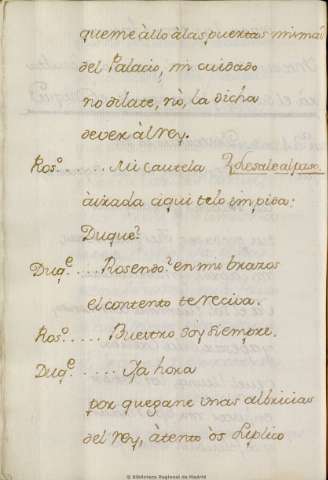 que me àllo àlas puertas mismas
del Palacio, mi cuidado
no dilate, nò, la dicha
de ver àl rey.
Rosº...... Mi cautela sale al paso
àirada aqui te lo impida:
Duque?
Duqᵉ.... Rosendo? en mis brazos
el contento te reciva.
Rosº..... Vuestro soy siempre.
Duqᵉ..... Ya hora
por que gane unas albricias
del rey, àtento òs suplico
© Biblioteca Regional de Madrid